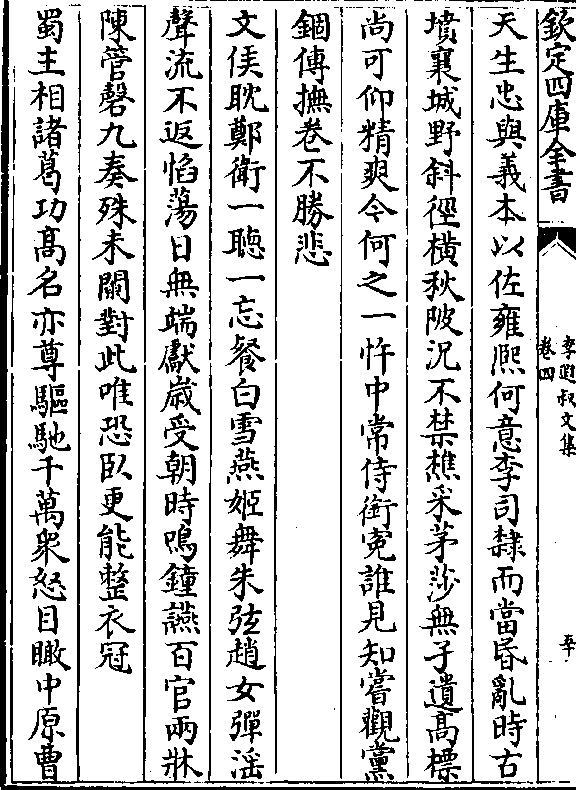 欽定四庫全書
李遐叔文集
卷四
天生忠與義本以佐雍熈何意李司隸而當昏亂時古
墳襄城野斜徑橫秋陂況不禁樵采茅莎無孑遺髙標
尚可仰精爽今何之一忤中常侍銜寃誰見知嘗觀黨
錮傳撫卷不勝悲
文侯耽鄭衛一聴一忘餐白雪燕姬舞朱弦趙女彈淫
聲流不返慆蕩日無端獻歲受朝時鳴鐘讌百官兩牀
陳管磬九奏殊未闌對此唯恐臥更能整衣冠
蜀主相諸葛功髙名亦尊驅馳千萬衆怒目瞰中原曹